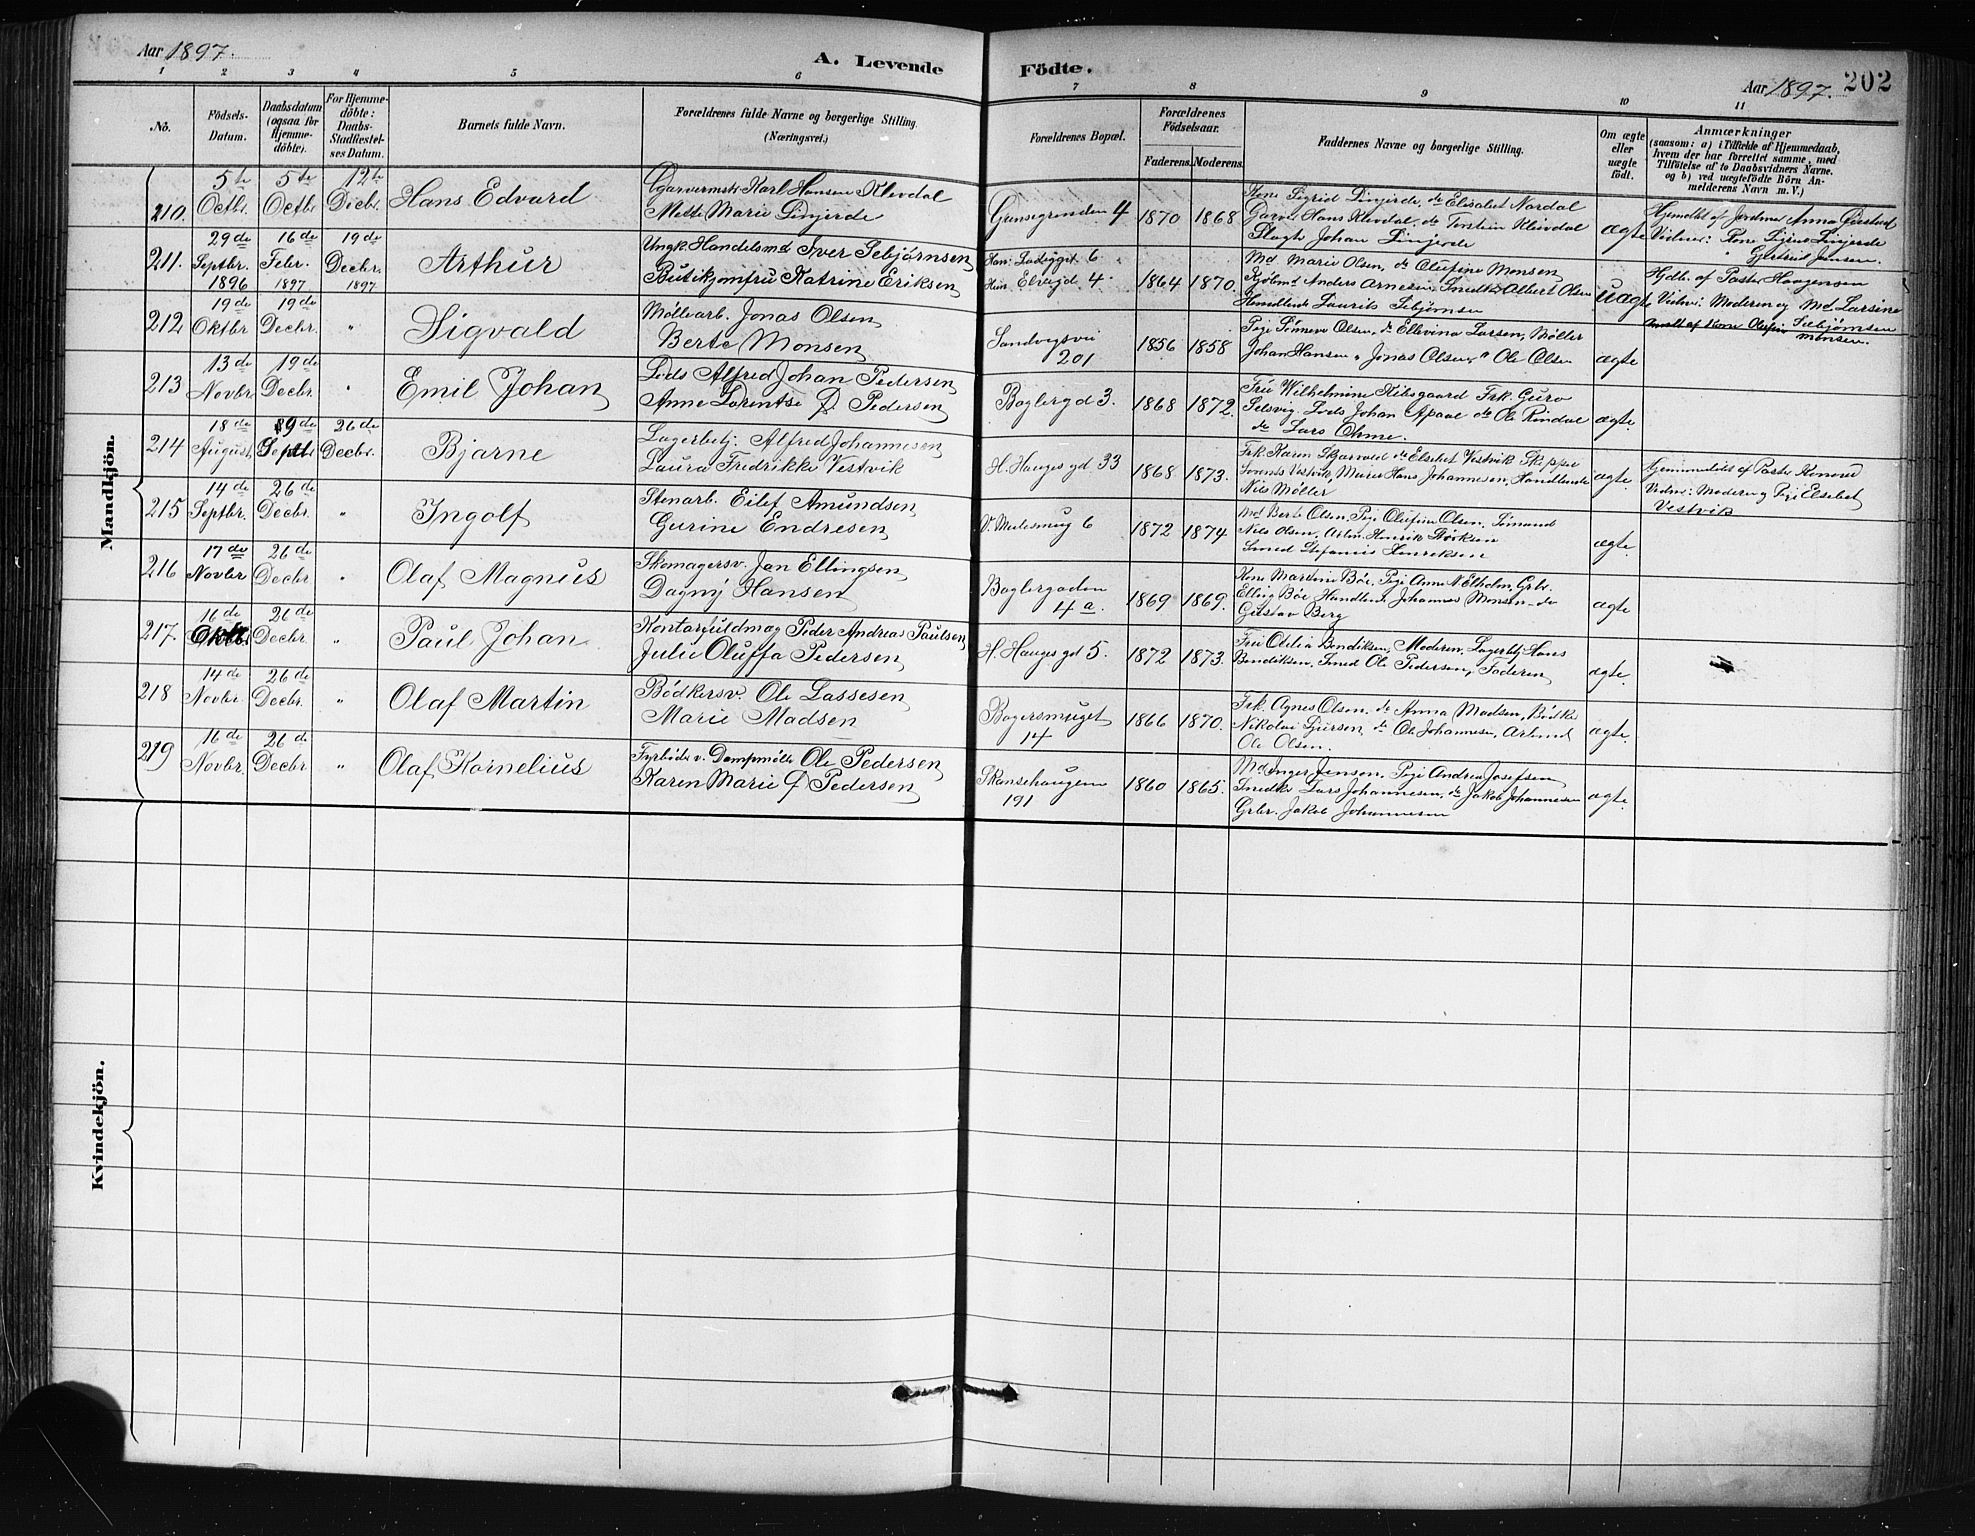 Aar 1897.
A. Levende Födte.
Aar 1897. 202
1 2 3 4 5 6 7 8 9 10 11
No.
Födsels-
Datum.
Daabsdatum
(ogsaa for
Hjemme-
döbte).
For Hjemme-
döbte:
Daabs-
Stadfæstel-
ses Datum.
Barnets fulde Navn.
Forældrenes fulde Navne og borgerlige Stilling.
(Næringsvei.)
Forældrenes Bopæl.
Forældrenes
Födselsaar.
Faderens. Moderens.
Faddernes Navne og borgerlige Stilling.
Om ægte
eller
uægte
födt.
Anmærkninger
(saasom: a) i Tilfælde af Hjemmedaab,
hvem der har forrettet samme, med
Tilföielse af to Daabsvidners Navne.
og b) ved uægtefödte Börn An-
melderens Navn m. V.)
Mandkjön.
210. 5te Octbr. 5te Octbr. 12te Decbr. Hans Edvard
Garvermstr Karl Hansen Kleivdal
Mette Marie Linjerde
Grønegrenden 4 1870 1868
Kone Sigrid Linjerde, do Elisabet Nordal
Garver Hans Kleivdal, do Torstein Kleivdal
Slagt Johan Linjerde
ægte
Hjemdbt af Jordmor Anna
Vidner: Kone Sigrid Linjerde
Gjertrud Jensen.
211. 29de Septbr. 1896 16de Febr. 1897 19de Decbr. 1897 Arthur
Ungk. Handelsmd Iver Sebjørnsen
Butikjomfru Katrine Eriksen
Han: 6
Hun: Elvegd 4. 1864 1870.
Md Marie Olsen, do Olufine Monsen
Kjøbmd Anders Arnesen, Snedk. Albert Olsen
Handlende Laurits Sebjørnsen
uægte
Hjdbt. af Pastor Haagensen
Vidner: Moderen og Md Larsine
Sebjørnsen
Anmeldt af Kone Olufine Monsen.
212. 19de Oktbr 19de Decbr. " Sigvald
Møllearb. Jonas Olsen
Berte Monsen
Sandvigsvei
201 1856 1858
Pige Sønneve Olsen, do Ellevina Larsen, Møller
Johan Hansen " Jonas Olsen, " Ole Olsen
ægte
213 13de Novbr 19de Decbr. " Emil Johan
Lods Alfred Johan Pedersen
Anne Lorentse f. Pedersen
Baglergd 3. 1868 1872.
Fru Wilhelmine Kibsgaard Frk. Guro
Selsvig. Lods Johan Apaal do Ole Rindal
do Lars Ohme.
ægte.
214 18de August. 9de Septbr 26de Decbr. Bjarne
Lagerbetj. Alfred Johannesen
Laura Fredrikke Vestvik
H. Hauges gd 33 1868 1873.
Frk. Karen Skjervold do Elsebet Vestvik Skipper
Vestvik, Murer Hans Johannesen, Handlende
Nils Møller
ægte.
Hjemmedøbt af Pastor
Vidner: Moderen og Pige Elsebet
Vestvik
215 14de Septbr. 26de Decbr. " Ingolf
Stenarb. Eilef Amundsen
Gurine Endresen
V. Medesmug 6 1872 1874
Md Berte Olsen, Pige Olufine Olsen. Sømand
Nils Olsen, Arbm. Henrik
Smed Stefanus Henriksen
ægte.
216 17de Novbr 26de Decbr. " Olaf Magnus
Skomagersv. Jan Ellingsen
Dagny Hansen
Baglergaden
4a. 1869 1869.
Kone Martine Bøe, Pige Anne N. Elholm, Grbr.
Elling Bøe Handlend. Johannes Monsen do
Gustav Berg
ægte
217. 16de Oktb. 26de Decbr. " Paul Johan
Kontorfuldmæg Peder Andreas Paulsen
Julie Oluffa Pedersen
H. Hauges gd 5. 1872 1873.
Fru Otilia Bendiksen, Moderen, Lagerbetj Hans
Bendiksen, Smed Ole Pedersen, Faderen
ægte.
218 14de Novbr. 26de Decbr. " Olaf Martin
Bødkersv. Ole Lassesen
Marie Madsen
Bagersmuget
14 1866 1870.
Frk. Agnes Olsen. do Anna Madsen, Bødker
Nikolai Sjursen, do Ole Johannesen, Arbmd
Ole Olsen.
ægte.
219 16de Novbr. 26de Decbr " Olaf Kornelius
Fyrbøder v. Dampmølle Ole Pedersen
Karen Marie f Pedersen
Skansehaugene
191 1860 1865.
Md Inger Jensen. Pige Andrea Josefsen
Snedker Lars Johannesen, do Jakob Johannesen
Grbr. Jakob Johannesen
ægte.
Kvindekjön.